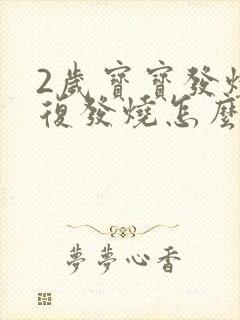 2歲寶寶發燒
復發燒怎麼
夢夢心香